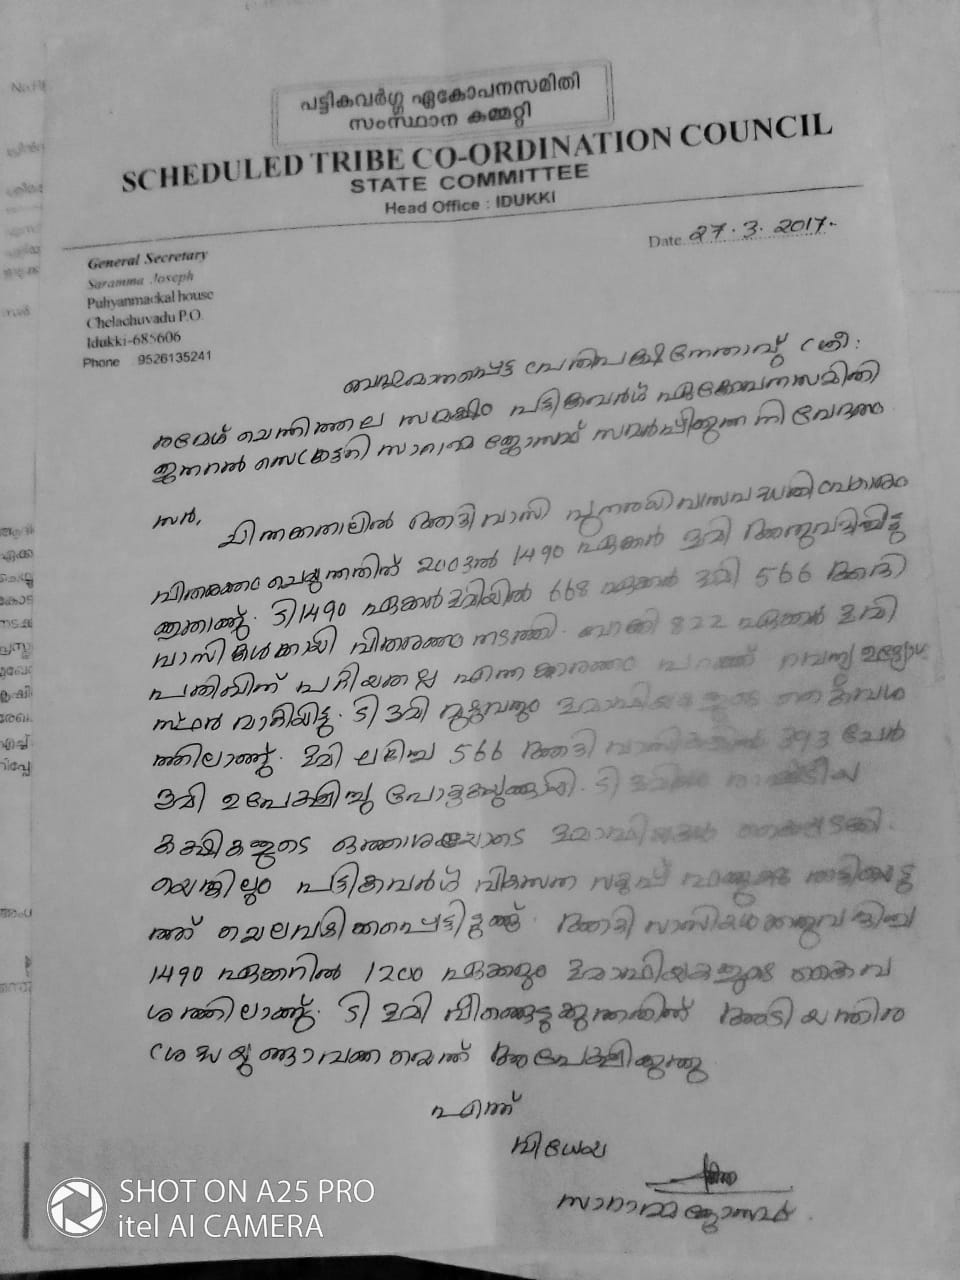 പട്ടികവർഗ്ഗ ഏകോപനസമിതി
സംസ്ഥാന കമ്മറ്റി
SCHEDULED TRIBE CO-ORDINATION COUNCIL
STATE COMMITTEE
Head Office : IDUKKI
Date 27.3.2017.
General Secretary
Saramma Joseph
Puliyanmackal house
Chelachuvadu P.O.
Idukki-685606
Phone 9526135241
ബഹുമാനപ്പെട്ട പ്രതിപക്ഷനേതാവ് ശ്രീ:
രമേശ് ചെന്നിത്തല സമക്ഷം പട്ടികവർഗ ഏകോപനസമിതി
ജനറൽ സെക്രട്ടറി സാറാമ്മ ജോസഫ് സമർപ്പിക്കുന്ന നിവേദനം
സർ,
ചിന്നക്കനാലിൽ ആദിവാസി പുനരധിവാസ പദ്ധതിപ്രകാരം
വിതരണം ചെയ്യുന്നതിന് 2003ൽ 1490 ഏക്കർ ഭൂമി അനുവദിച്ചിട്ടു
ള്ളതാണ്. ടി 1490 ഏക്കർ ഭൂമിയിൽ 668 ഏക്കർ ഭൂമി 566 ആദി
വാസികൾക്കായി വിതരണം നടത്തി. ബാക്കി 822 ഏക്കർ ഭൂമി
പതിവിന് പറ്റിയതല്ല എന്ന കാരണം പറഞ്ഞ് റവന്യൂ ഉദ്യോഗ
സ്ഥർ മാറ്റിയിട്ടു. ടി ഭൂമി മുഴുവനും ഭൂമാഫിയകളുടെ കൈവശ
ത്തിലാണ്. ഭൂമി ലഭിച്ച 566 ആദിവാസികളിൽ 393 പേർ
ഭൂമി ഉപേക്ഷിച്ചു പോകുകയുണ്ടായി. ടി ഭൂമികൾ രാഷ്ട്രീയ
കക്ഷികളുടെ ഒത്താശയോടെ ഭൂമാഫിയകൾ കൈയ്യടക്കി.
യെങ്കിലും പട്ടികവർഗ വികസന വകുപ്പ്
ത്ത് ചെലവഴിക്കപ്പെട്ടിട്ടുണ്ട്. ആദിവാസികൾക്കനുവദിച്ച
1490 ഏക്കറിൽ 1200 ഏക്കറും ഭൂമാഫിയകളുടെ കൈവ
ശത്തിലാണ്. ടി ഭൂമി വീണ്ടെടുക്കുന്നതിന് അടിയന്തിര
ശ്രദ്ധയുണ്ടാവണമെന്ന് അപേക്ഷിക്കുന്നു
എന്ന്
വിധേയ
സാറാമ്മ ജോസഫ്
SHOT ON A25 PRO
itel AI CAMERA